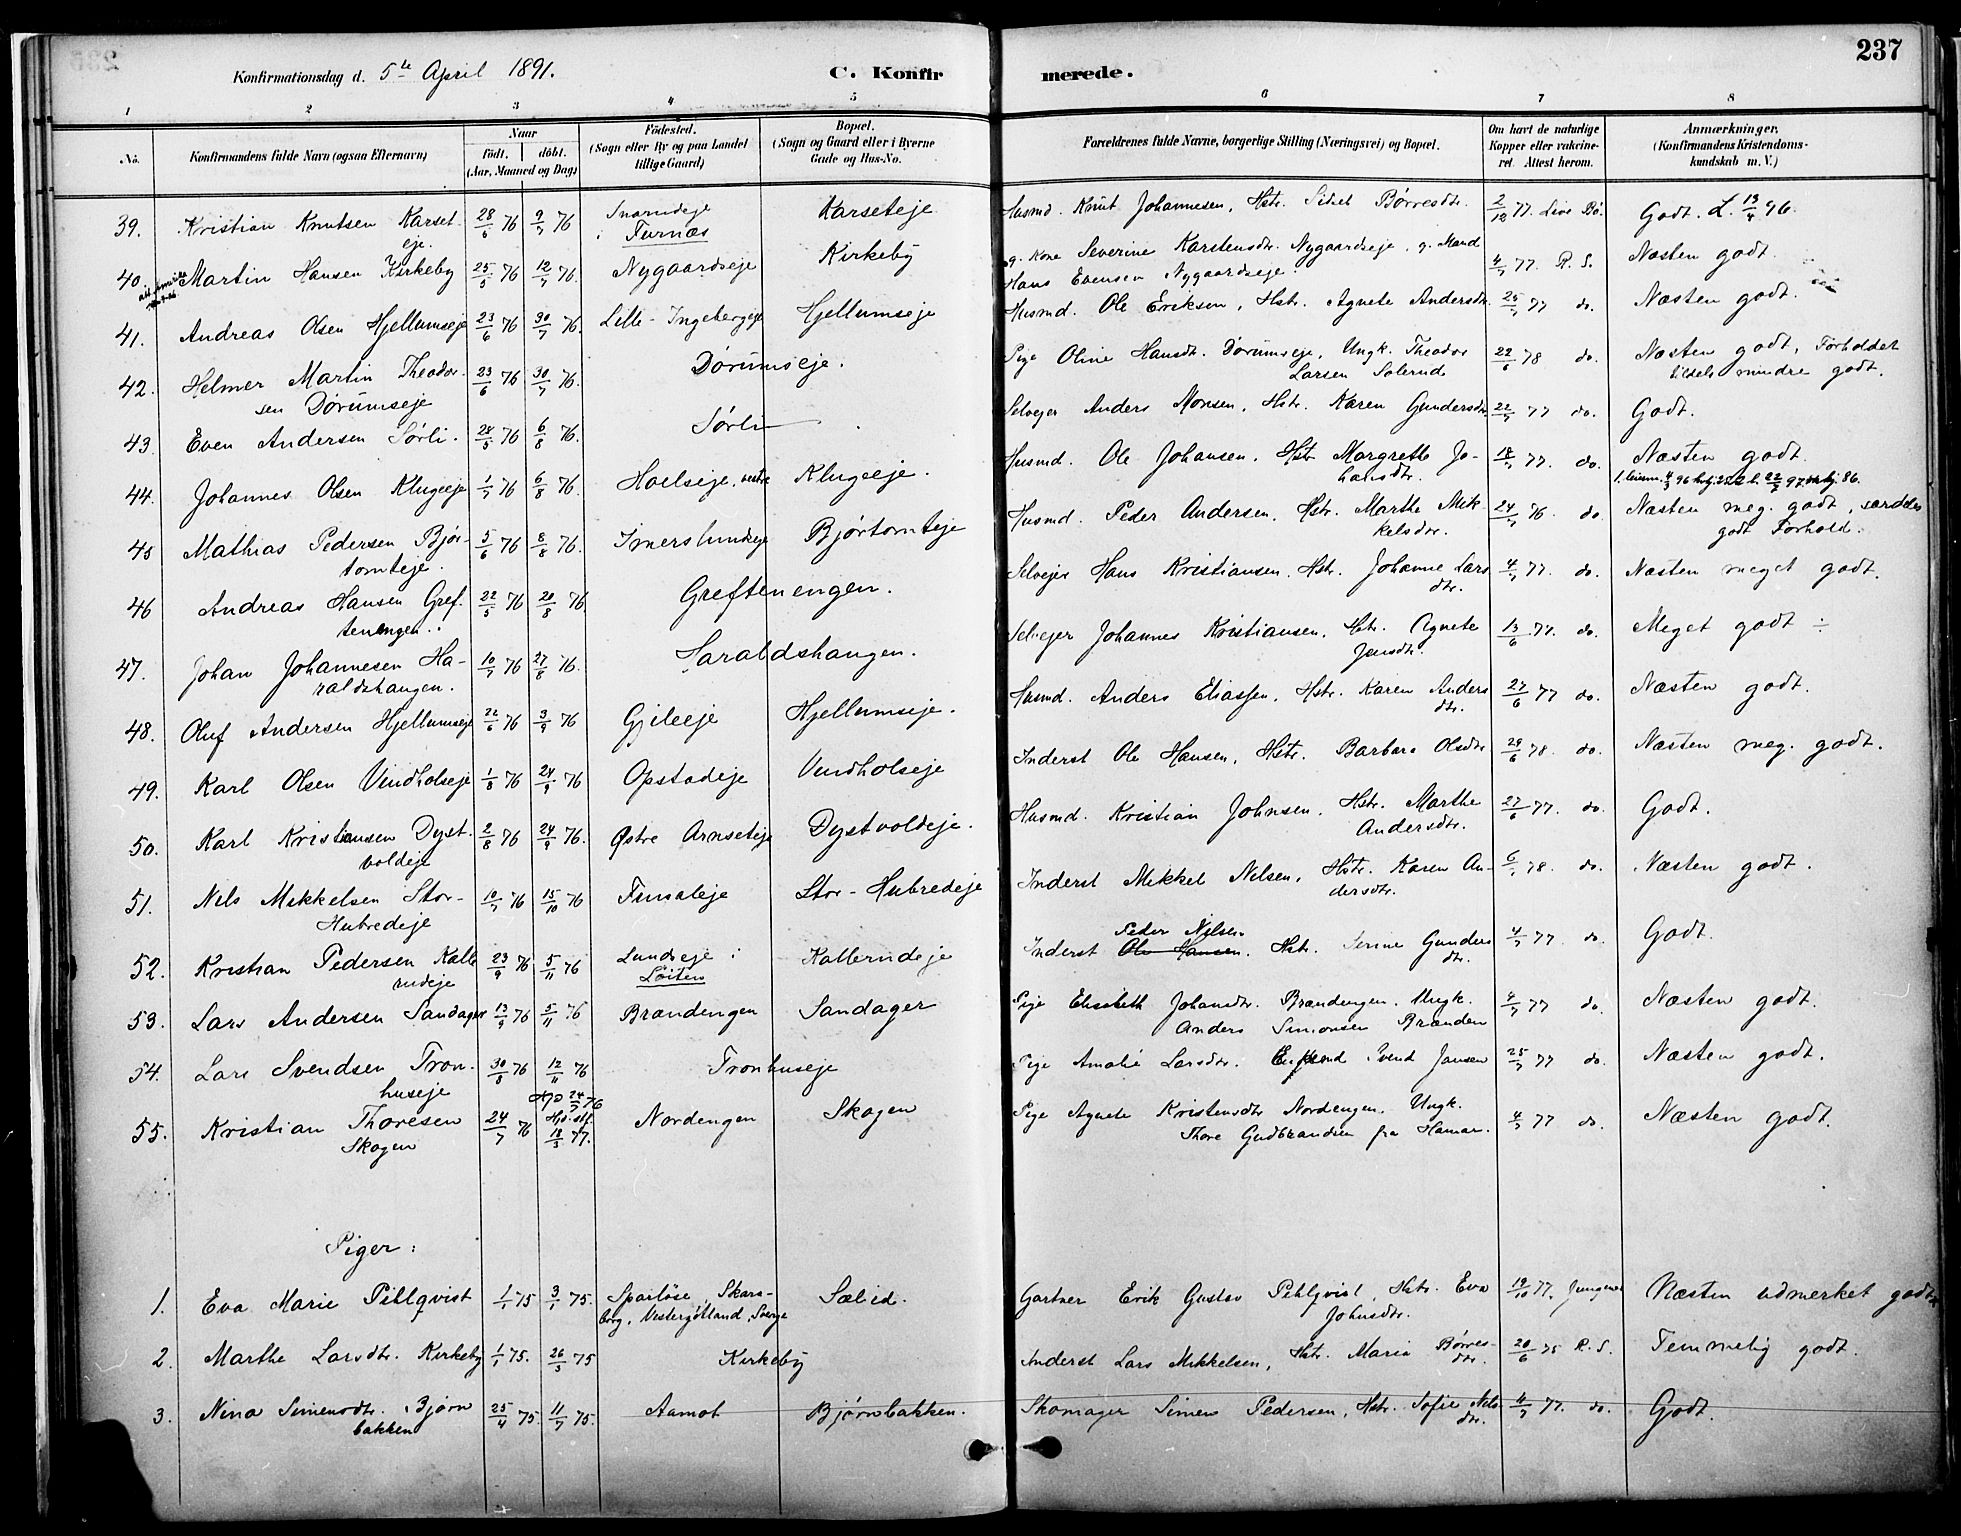 237
Konfirmationsdag d. 5te April 1891.
C. Konfirmerede.
1 2 3 4 5 6 7 8
No. Konfirmandens fulde Navn (ogsaa Efternavn) Naar født. døbt. (Aar, Maaned og Dag) Fødested. (Sogn eller By og paa Landet tillige Gaard) Bopæl. (Sogn og Gaard eller i Byerne Gade og Hus-No. Forældrenes fulde Navne, borgerlige Stilling (Næringsvei) og Bopæl. Om havt de naturlige Kopper eller vakcineret. Attest herom. Anmærkninger. (Konfirmandens Kristendomskundskab m. V.)
39. Kristian Knutsen Karseteje. 28/6 76 9/7 76 i Furnæs Karseteje Husmd. Knut Johannesen, Hstr. Sidsel Børresdtr. 2/12 77. Godt. L. 13/4 96.
40. Martin Hansen Kirkeby 25/5 76 12/7 76. Nygaardseje Kirkeby g. Kone Severine Karstensdtr. Nygaardseje, g. Mand Hans Evensen Nygaardseje. 4/7 77. R. S. Næsten godt.
41. Andreas Olsen Hjellumseje 23/6 76 30/7 76. Lille-Ingebergeje Hjellumseje Husmd. Ole Eriksen, Hstr. Agnete Andersdtr. 25/7 77 do. Næsten godt.
42. Helmer Martin Theodorsen Dørumseje 23/6 76 30/7 76. Dørumseje. Pige Oline Hansdt. Dørumseje, Ungk. Theodor Larsen Solerud 22/6 78 do. Næsten godt, Forholdet tildels mindre godt.
43. Even Andersen Sørli. 24/5 76 6/8 76. Sørli Selvejer Anders Monsen, Hstr. Karen Gundersdtr. 22/7 77 do. Godt.
44. Johannes Olsen Klugeeje 1/7 76 6/8 76. Hoelseje, vestre Klugeeje. Husmd. Ole Johansen, Hstr Margrethe Johansdtr. 18/7 77. do. Næsten godt.
45 Mathias Pedersen Bjørtomteje. 5/6 76 8/8 76. Imerslundseje Bjørtomteje Husmd. Peder Andersen, Hstr. Marthe Mikkelsdtr. 24/7 76 do. Næsten meg. godt, særdeles godt Forhold.
46 Andreas Hansen Greftenengen. 22/5 76 20/8 76 Greftenengen. Selvejer Hans Kristiansen, Hstr. Johanne Larsdtr. 4/7 77. do. Næsten meget godt.
47. Johan Johannesen Haraldshaugen. 10/7 76 27/8 76. Haraldshaugen. Selvejer Johannes Kristiansen, Hstr. Agnete Jensdtr. 13/6 77. do. Meget godt
48. Oluf Andersen Hjellumseje 22/6 76 3/9 76 Gjileeje Hjellumseje. Husmd. Anders Eliassen, Hstr. Karen Andersdtr. 27/6 77 do. Næsten godt.
49. Karl Olsen Vindholseje 1/8 76 24/9 76 Opstadeje Vindholseje Inderst Ole Hansen, Hstr. Barbara Olsdtr 29/6 78. do. Næsten meg. godt.
50. Karl Kristiansen Dystvoldeje 2/8 76 24/9 76. Østre Arnseteje Dystvoldeje. Husmd. Kristian Johnsen, Hstr. Marthe Andersdtr. 27/6 77. do. Godt.
51. Nils Mikkelsen Stor-Hubredeje 10/7 76 15/10 76 Finsaleje Stor-Hubredeje Inderst Mikkel Nilsen, Hstr. Karen Andersdtr. 6/7 78. do. Næsten godt.
52. Kristian Pedersen Kallerudeje 23/9 76 5/11 76 Lundseje i Løiten Kallerudeje Inderst Ole Hansen. Peder Nilsen Hstr. Serine Gundersdtr. 4/7 77. do. Godt.
53. Lars Andersen Sandager 13/9 76 5/11 76 Brændengen Sandager Pige Elisabeth Johansdtr. Brændengen. Ungk. Anders Simonsen Brænden 4/7 77 do. Næsten godt.
54. Lars Svendsen Tronhuseje 30/8 76 12/11 76 Tronhuseje Pige Amalie Larsdtr. Svend Jansen 25/7 77 do. Næsten godt.
55. Kristian Thoresen Skogen 24/7 76 Hjd. 24/7 76 18/3 77. Nordengen Skogen Pige Agnete Kristensdtr Nordengen. Ungk. Thore Gudbrandsen fra Hamar. 4/7 77 do. Næsten godt.
Piger:
1. Eva Marie Pihlqvist 1/1 75 3/1 75. Sparlöse, Skaraborg, Vestergötland, Sverge Sælid. Gartner Erik Gustav Pihlqvist, Hstr. Eva Johnsdtr. 19/10 77. Næsten udmerket godt
2. Marthe Larsdtr. Kirkeby 1/1 75. 26/3 75 Kirkeby Inderst Lars Mikkelsen, Hstr. Maria Børresdtr. 20/6 75 R. S. Temmelig godt.
3. Nina Simensdtr. Bjørnbakken 25/4 75. 11/7 75. Aamot Bjørnbakken. Skomager Simen Pedersen, Hstr. Sofie Nilsdtr. 4/7 77. do. Godt.